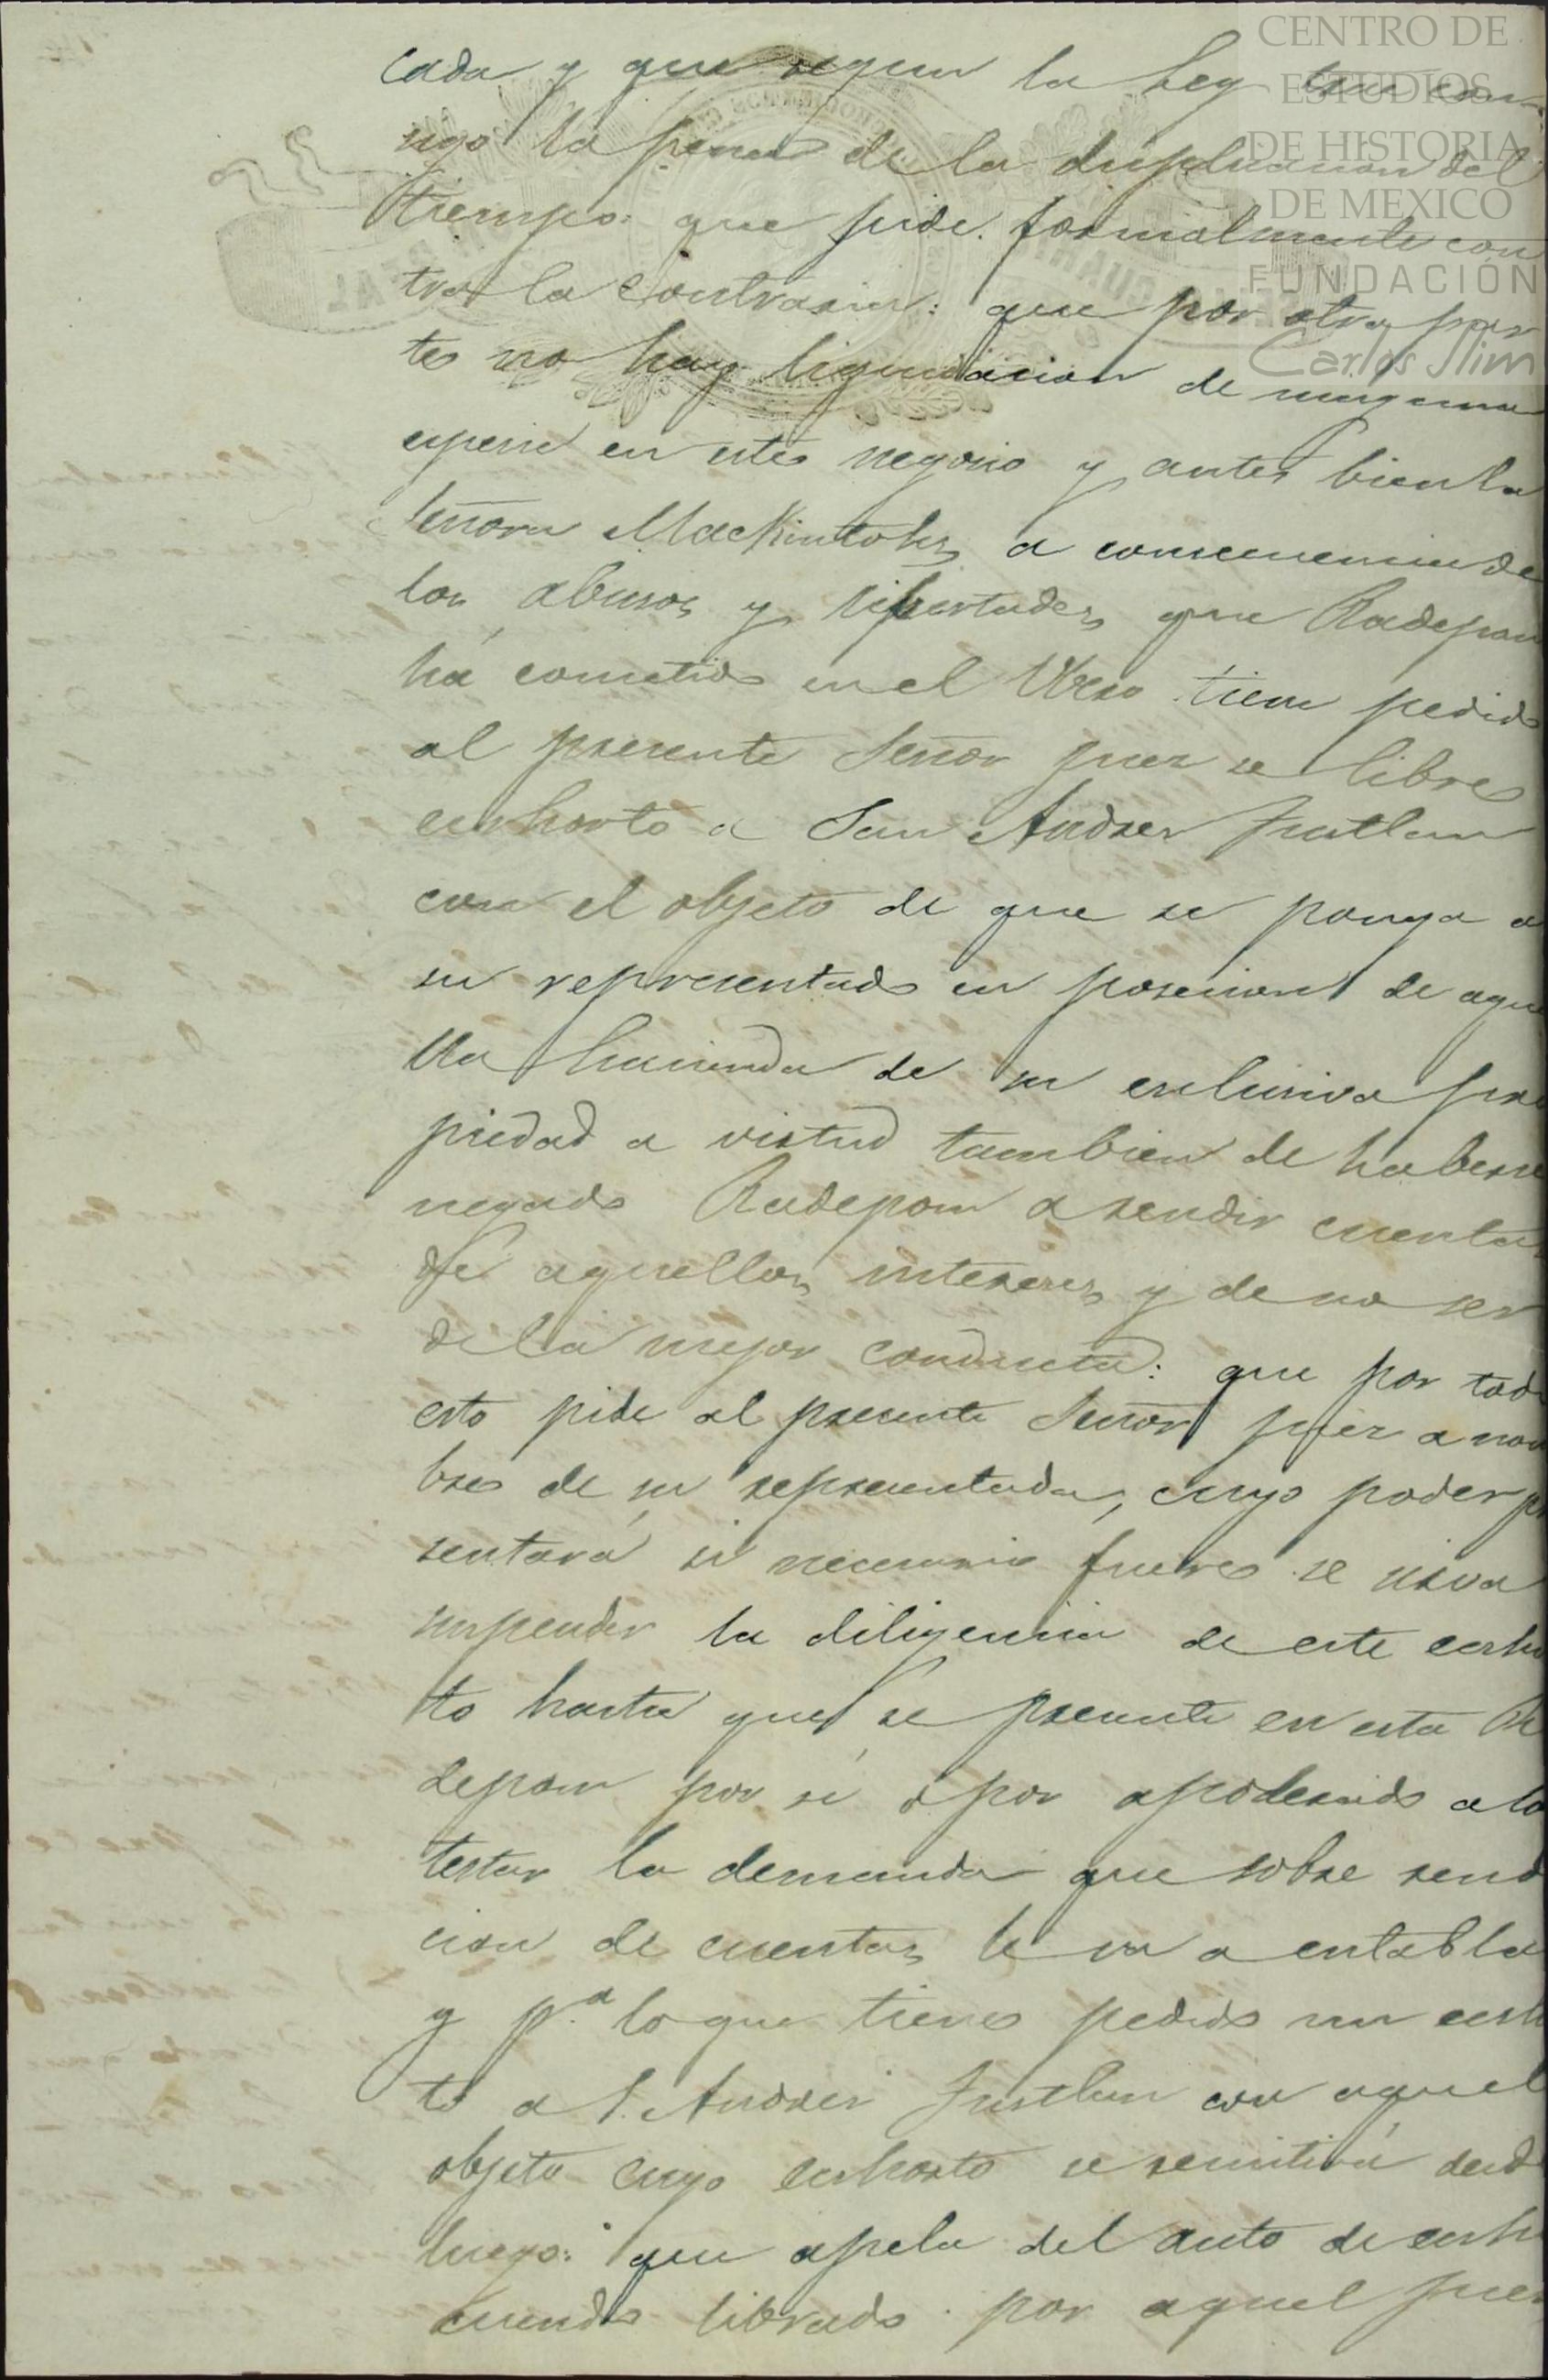 CENTRO DE
ESTUDIOS
DE HISTORIA
DE MEXICO
FUNDACIÓN
Carlos Slim
cada y que segun la Ley trae con
sigo la pena de la duplicacion del
tiempo: que pide formalmente con
tra la contraria: que por otra par
te no hay liquidacion de ninguna
especie en este negocio y antes bien la
Señora MacKintohs a consecuencia de
los abusos y libertades que Radepon
há cometido en el tiene pedido
al presente Señor juez se libre
exhorto a San Andres Tustlan
con el objeto de que se ponga a
su representado en posesion de aque
lla hacienda de su esclusiva pro
piedad a virtud tambien de haberse
negado Radepon a rendir cuentas
de aquellos intereses y de no ser
de la mejor conducta: que por todo
esto pide al presente Señor juez a nom
bre de su representada, cuyo poder pre
sentará si necesario fuere se sirva
suspender la diligencia de este exhor
to hasta que se presente en esta Ra
depon por sí o por apoderado a con
testar la demanda que sobre rendi
cion de cuentas le va a entablar
y p.ª lo que tiene pedido un exhor
to a S. Andres Tustlan con aquel
objeto cuyo exhorto se remitirá desde
luego: que apela del auto de
librado por aquel juez